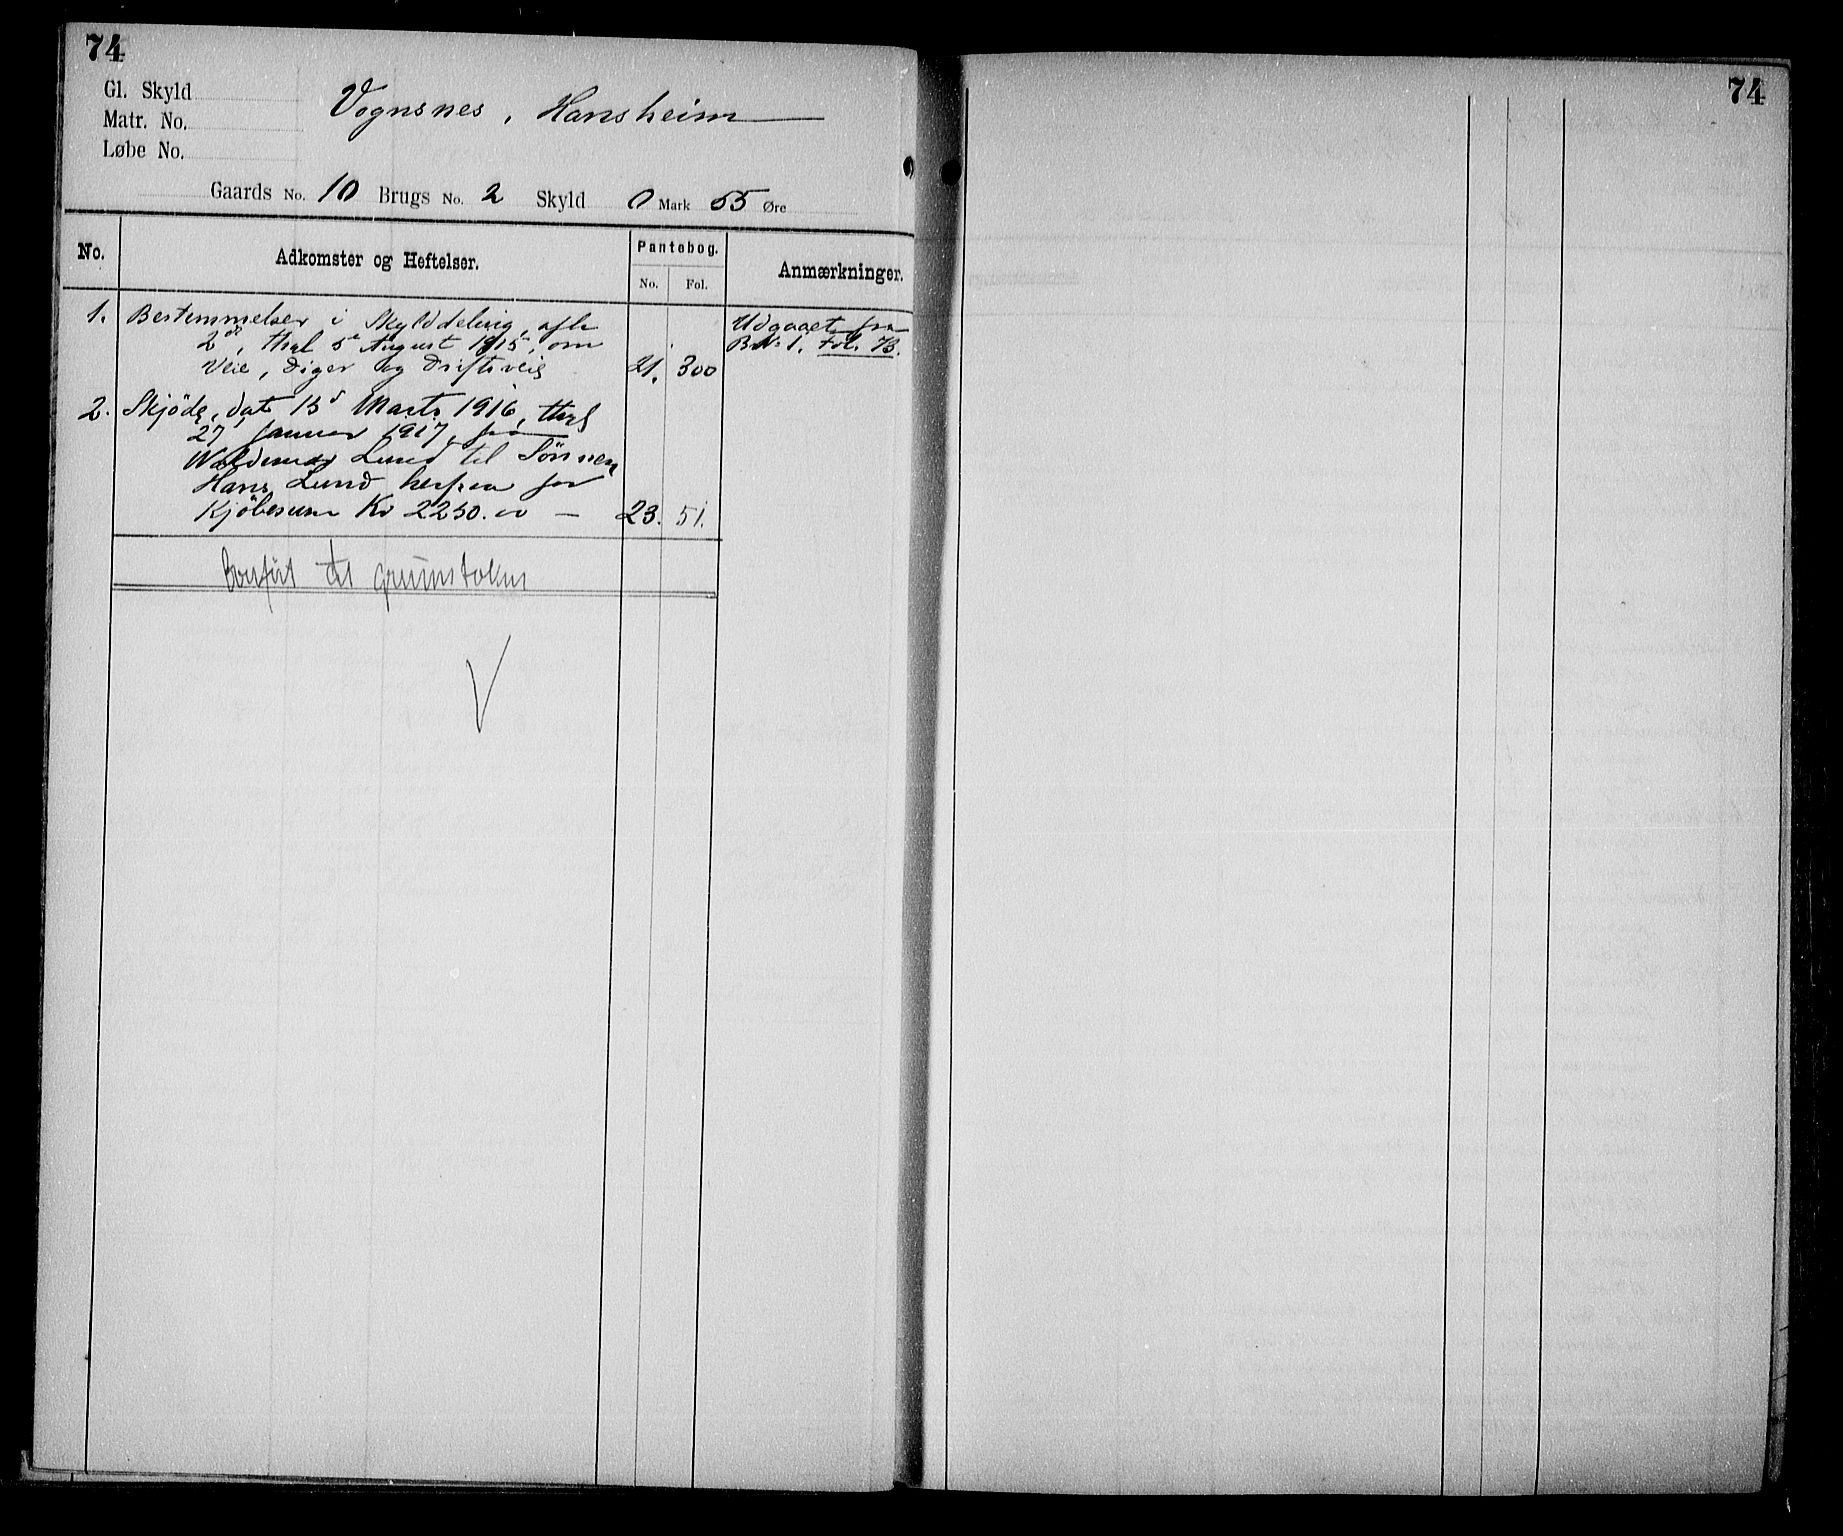 74
Gl. Skyld
Matr. No.
Løbe No.
Vognsnes, Hansheim
Gaards No. 10 Brugs No. 2 Skyld 0 Mark 55 Øre
No. Adkomster og Heftelser. Pantebog. Anmærkninger.
No. Fol.
1. Bestemmelser i Skylddeling, afh
2den, thgl 5te August 1915, om
Veie, Diger og Driftsveie 21. 300
Udgaaet fra
B.No 1. Fol. 73.
2. Skjöde, dat 13de Marts 1916, thgl
27 Januar 1917, fra
Waldemar Lund til Sönnen
Hans Lund herpaa for
Kjöbesum Kr 2250.00 — 23. 51.
Overført til grunnboken
74